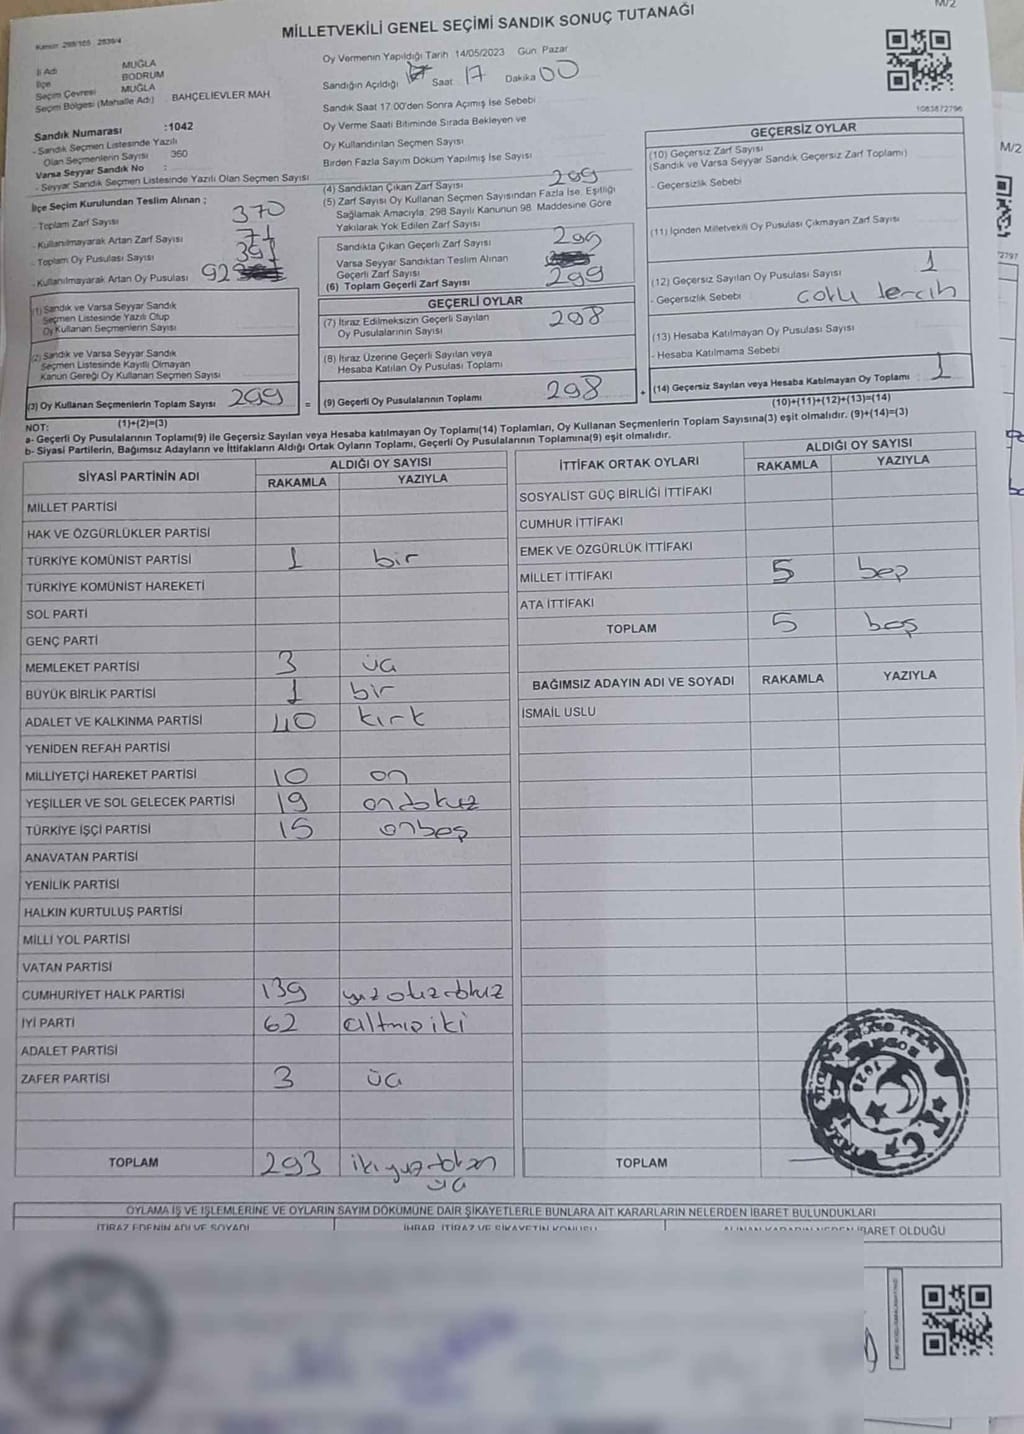 M/2
MİLLETVEKİLİ GENEL SEÇİMİ SANDIK SONUÇ TUTANAĞI
İl Adı MUĞLA
İlçe BODRUM
Seçim Çevresi MUĞLA
Seçim Bölgesi (Mahalle Adı) BAHÇELİEVLER MAH.
Sandık Numarası :1042
- Sandık Seçmen Listesinde Yazılı
Olan Seçmenlerin Sayısı 360
Varsa Seyyar Sandık No :
- Seyyar Sandık Seçmen Listesinde Yazılı Olan Seçmen Sayısı
İlçe Seçim Kurulundan Teslim Alınan ;
- Toplam Zarf Sayısı 370
- Kullanılmayarak Artan Zarf Sayısı 71
- Toplam Oy Pusulası Sayısı 391
- Kullanılmayarak Artan Oy Pusulası 92
(1) Sandık ve Varsa Seyyar Sandık
Seçmen Listesinde Yazılı Olup
Oy Kullanan Seçmenlerin Sayısı
(2) Sandık ve Varsa Seyyar Sandık
Seçmen Listesinde Kayıtlı Olmayan
Kanun Gereği Oy Kullanan Seçmen Sayısı
(3) Oy Kullanan Seçmenlerin Toplam Sayısı 299 =
(1)+(2)=(3)
Oy Vermenin Yapıldığı Tarih 14/05/2023 Gün Pazar
Sandığın Açıldığı Saat 17 Dakika 00
Sandık Saat 17.00'den Sonra Açımış İse Sebebi
Oy Verme Saati Bitiminde Sırada Bekleyen ve
Oy Kullandırılan Seçmen Sayısı
Birden Fazla Sayım Döküm Yapılmış İse Sayısı
(4) Sandıktan Çıkan Zarf Sayısı 299
(5) Zarf Sayısı Oy Kullanan Seçmen Sayısından Fazla İse, Eşitliği
Sağlamak Amacıyla, 298 Sayılı Kanunun 98. Maddesine Göre
Yakılarak Yok Edilen Zarf Sayısı
Sandıkta Çıkan Geçerli Zarf Sayısı 299
Varsa Seyyar Sandıktan Teslim Alınan
Geçerli Zarf Sayısı
(6) Toplam Geçerli Zarf Sayısı 299
GEÇERLİ OYLAR
(7) İtiraz Edilmeksizin Geçerli Sayılan
Oy Pusulalarının Sayısı 298
(8) İtiraz Üzerine Geçerli Sayılan veya
Hesaba Katılan Oy Pusulası Toplamı
(9) Geçerli Oy Pusulalarının Toplamı 298
1083872796
GEÇERSİZ OYLAR
(10) Geçersiz Zarf Sayısı
(Sandık ve Varsa Seyyar Sandık Geçersiz Zarf Toplamı)
- Geçersizlik Sebebi
(11) İçinden Milletvekili Oy Pusulası Çıkmayan Zarf Sayısı
(12) Geçersiz Sayılan Oy Pusulası Sayısı 1
- Geçersizlik Sebebi
(13) Hesaba Katılmayan Oy Pusulası Sayısı
- Hesaba Katılmama Sebebi
(14) Geçersiz Sayılan veya Hesaba Katılmayan Oy Toplamı 1
(10)+(11)+(12)+(13)=(14)
NOT:
a- Geçerli Oy Pusulalarının Toplamı(9) ile Geçersiz Sayılan veya Hesaba katılmayan Oy Toplamı(14) Toplamları, Oy Kullanan Seçmenlerin Toplam Sayısına(3) eşit olmalıdır. (9)+(14)=(3)
b- Siyasi Partilerin, Bağımsız Adayların ve İttifakların Aldığı Ortak Oyların Toplamı, Geçerli Oy Pusulalarının Toplamına(9) eşit olmalıdır.
SİYASİ PARTİNİN ADI ALDIĞI OY SAYISI
RAKAMLA YAZIYLA
MİLLET PARTİSİ
HAK VE ÖZGÜRLÜKLER PARTİSİ
TÜRKİYE KOMÜNİST PARTİSİ 1 bir
TÜRKİYE KOMÜNİST HAREKETİ
SOL PARTİ
GENÇ PARTİ
MEMLEKET PARTİSİ 3 üç
BÜYÜK BİRLİK PARTİSİ 1 bir
ADALET VE KALKINMA PARTİSİ 40 kırk
YENİDEN REFAH PARTİSİ
MİLLİYETÇİ HAREKET PARTİSİ 10 on
YEŞİLLER VE SOL GELECEK PARTİSİ 19 ondokuz
TÜRKİYE İŞÇİ PARTİSİ 15 onbeş
ANAVATAN PARTİSİ
YENİLİK PARTİSİ
HALKIN KURTULUŞ PARTİSİ
MİLLİ YOL PARTİSİ
VATAN PARTİSİ
CUMHURİYET HALK PARTİSİ 139 yüzotuzdokuz
İYİ PARTİ 62 altmışiki
ADALET PARTİSİ
ZAFER PARTİSİ 3 üç
TOPLAM 293 ikiyüzdoksan
üç
İTTİFAK ORTAK OYLARI ALDIĞI OY SAYISI
RAKAMLA YAZIYLA
SOSYALİST GÜÇ BİRLİĞİ İTTİFAKI
CUMHUR İTTİFAKI
EMEK VE ÖZGÜRLÜK İTTİFAKI
MİLLET İTTİFAKI 5 beş
ATA İTTİFAKI
TOPLAM 5 beş
BAĞIMSIZ ADAYIN ADI VE SOYADI RAKAMLA YAZIYLA
İSMAİL USLU
TOPLAM
T.C.
OYLAMA İŞ VE İŞLEMLERİNE VE OYLARIN SAYIM DÖKÜMÜNE DAİR ŞİKAYETLERLE BUNLARA AİT KARARLARIN NELERDEN İBARET BULUNDUKLARI
İTİRAZ EDENİN ADI VE SOYADI İHBAR, İTİRAZ VE ŞİKAYETİN KONUSU ALINAN KARARIN NEDEN İBARET OLDUĞU
M/2